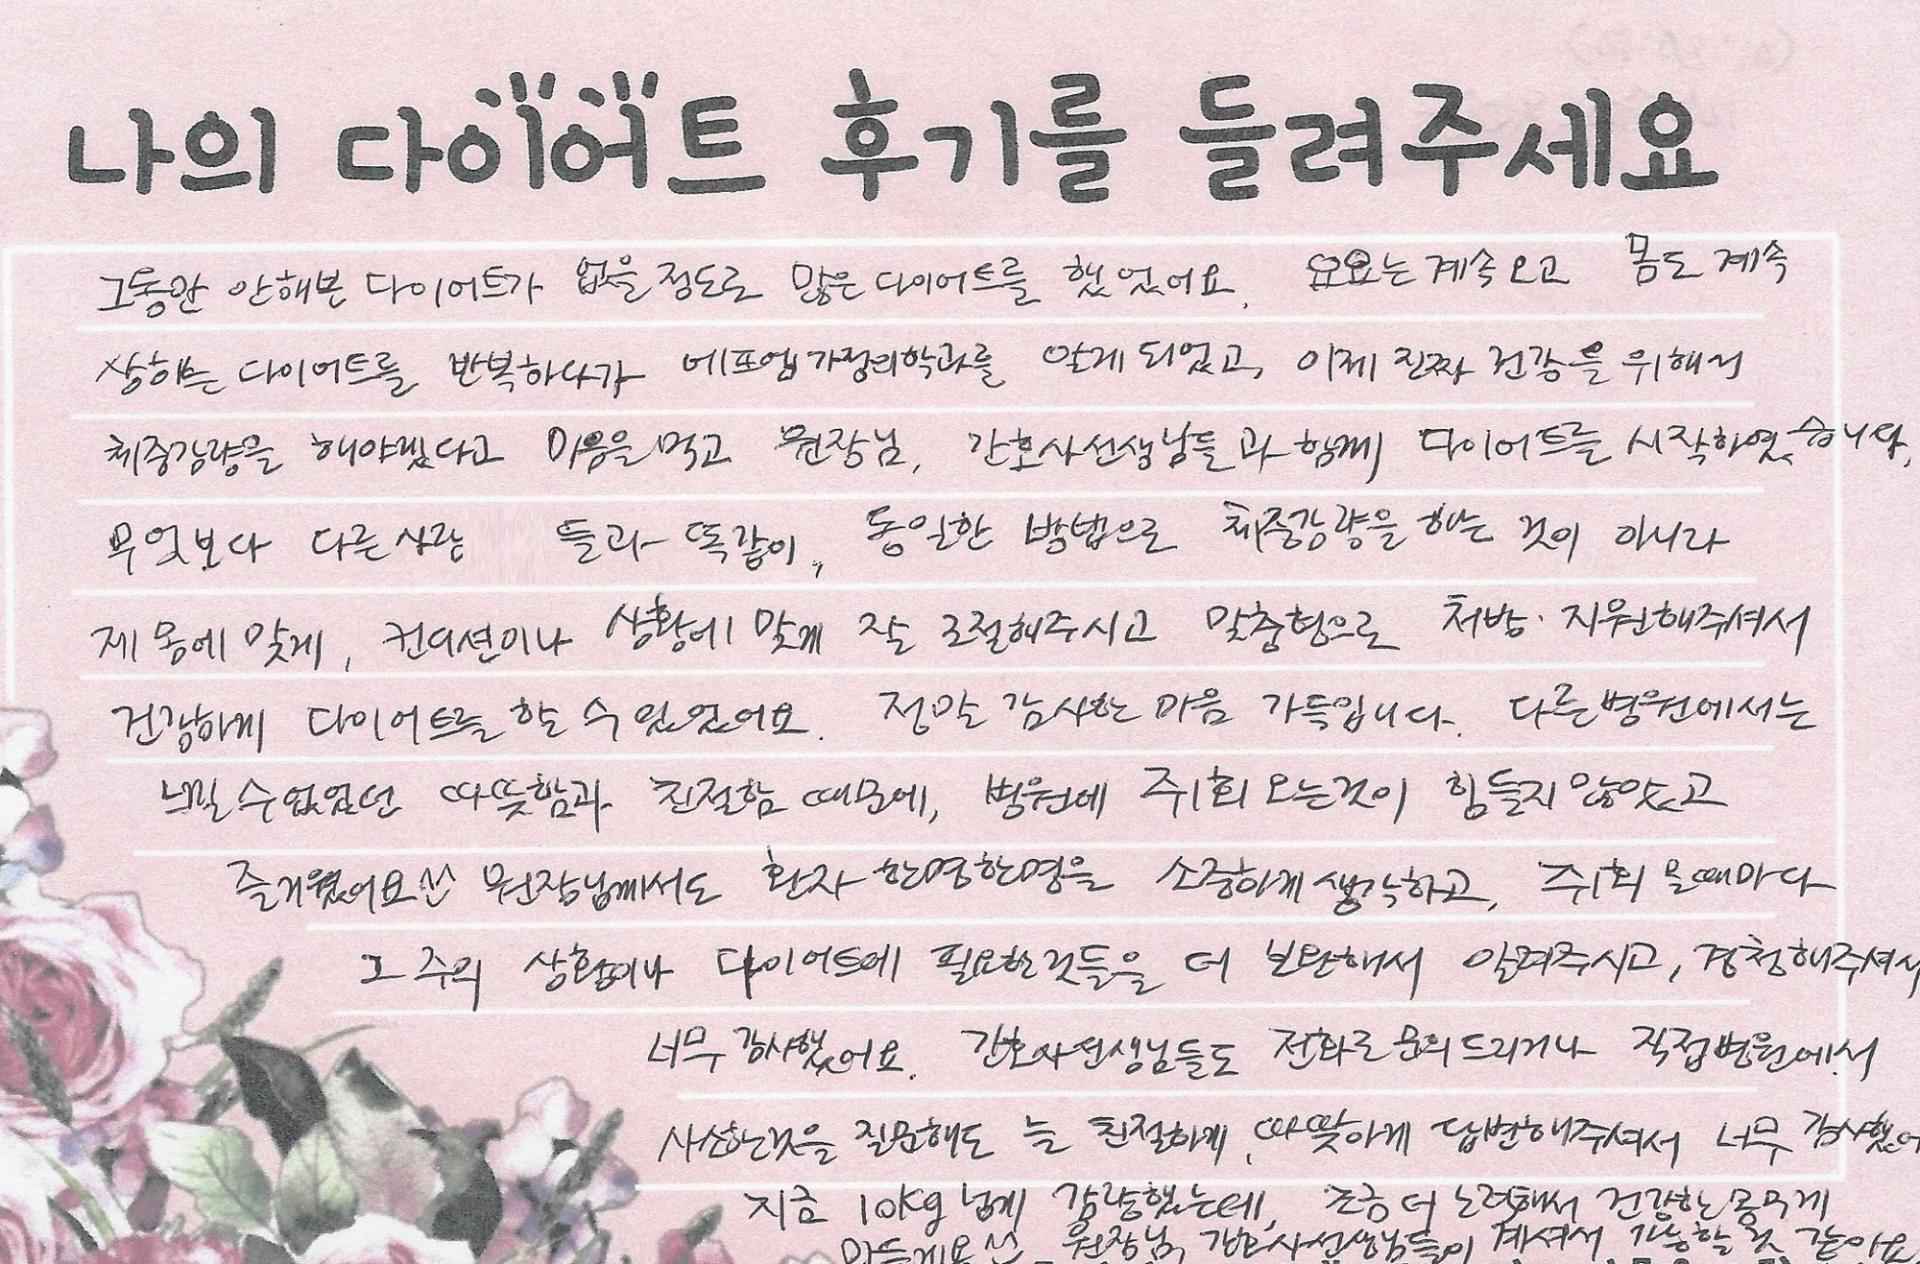 나의 다이어트 후기를 들려주세요
그동안 안해본 다이어트가 없을 정도로 많은 다이어트를 했었어요. 요요는 계속 오고 몸도 계속
상하는 다이어트를 반복하다가 에프엠가정의학과를 알게 되었고, 이제 진짜 건강을 위해서
체중감량을 해야겠다고 마음을 먹고 원장님, 간호사선생님들과 함께 다이어트를 시작하였습니다.
무엇보다 다른사람 들과 똑같이, 동일한 방법으로 체중감량을 하는 것이 아니라
제 몸에 맞게, 컨디션이나 상황에 맞게 잘 조절해주시고 맞춤형으로 처방·지원해주셔서
건강하게 다이어트를 할 수 있었어요. 정말 감사한 마음 가득입니다. 다른병원에서는
느낄수없었던 따뜻함과 친절함 때문에, 병원에 주1회 오는것이 힘들지 않았고
즐거웠어요^^ 원장님께서도 환자 한명한명을 소중하게 생각하고, 주1회 올때마다
그 주의 상황이나 다이어트에 필요한것들을 더 보완해서 알려주시고, 경청해주셔서
너무 감사했어요. 간호사선생님들도 전화로 문의드리거나 직접병원에서
사소한것을 질문해도 늘 친절하게, 따뜻하게 답변해주셔서 너무 감사했어
지금 10kg 넘게 감량했는데, 조금 더 노력해서 건강한 몸무게
만들게요^^ 원장님, 간호사선생님들이 계셔서 가능할 것 같아요